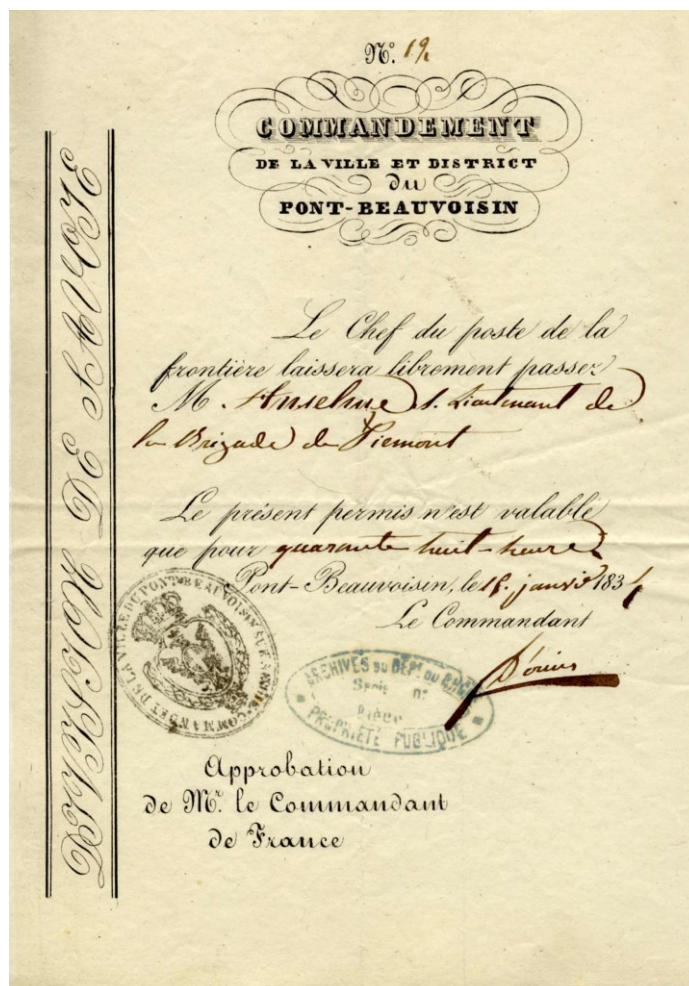 N.º 19
COMMANDEMENT
DE LA VILLE ET DISTRICT
du
PONT-BEAUVOISIN
DIVISION DE SAVOIE
Le Chef du poste de la
frontière laissera librement passer
M. Anselme s. Lieutenant de
la Brigade de Piemont
Le présent permis n'est valable
que pour quarante huit-heures
Pont-Beauvoisin, le 15 janvier 183
Le Commandant
COMMANDT DE LA VILLE DU PONT BEAUVOISIN
ARCHIVES DU DÉPT DU RHÔNE
Série n°
Pièce
PROPRIÉTÉ PUBLIQUE
Approbation
de Mr. le Commandant
de France